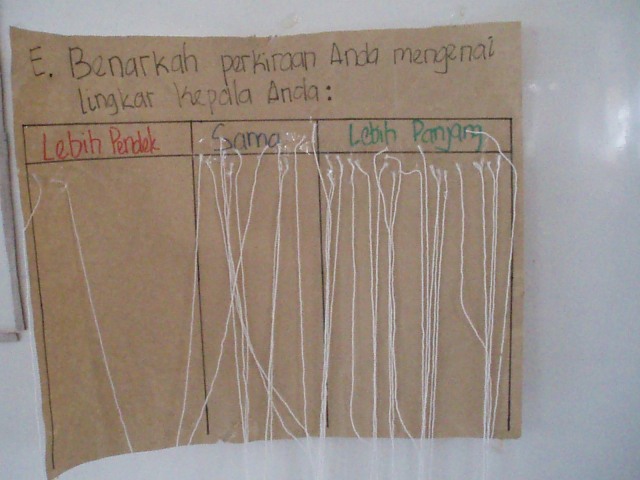 E. Benarkah perkiraan Anda mengenai
lingkar Kepala Anda:
Lebih Pendek
Sama
Lebih Panjang